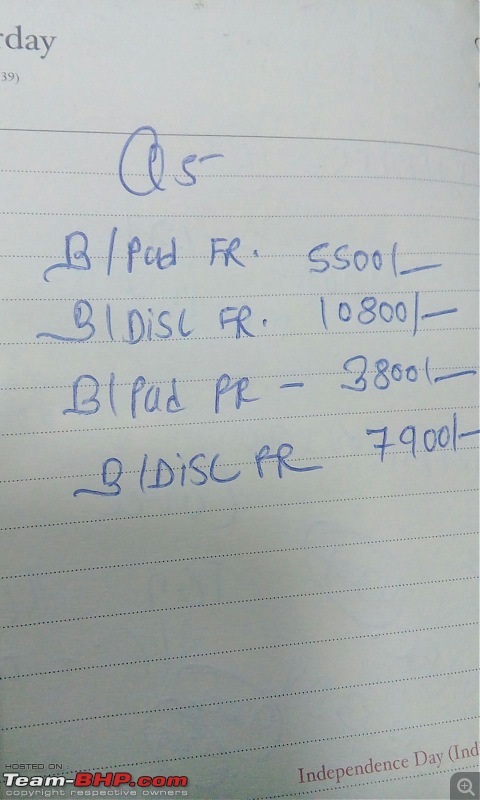 rday
39)
Q5
B/Pad FR. 5500/-
B/DISC FR. 10800/-
B/Pad RR - 3800/-
B/DISC RR 7900/-
Independence Day (Ind
HOSTED ON :
Team-BHP.com
copyright respective owners